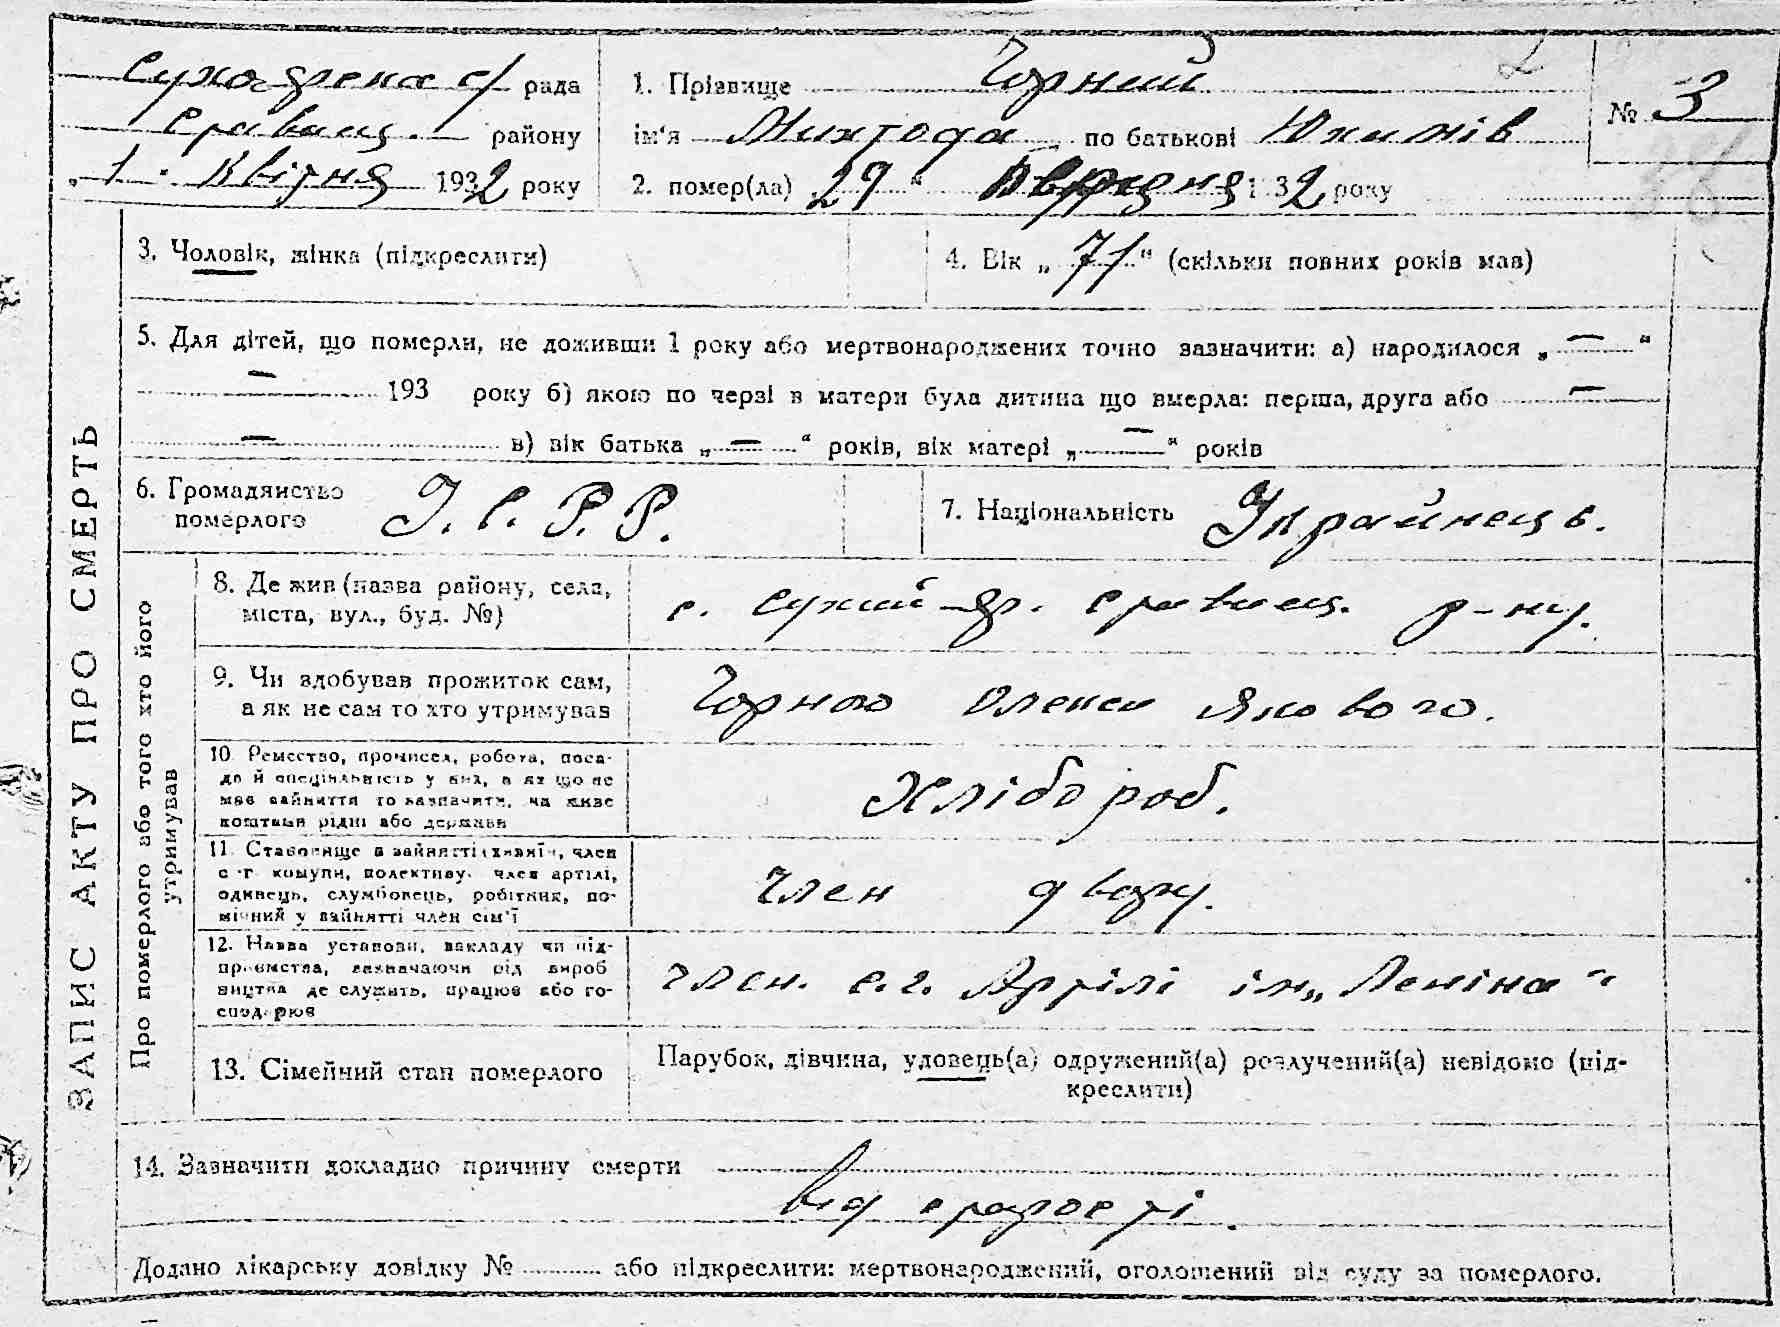 ЗАПИС АКТУ ПРО СМЕРТЬ
Сухоярська с/ рада
Ставищ. району
„1. Квітня 1932 року
1. Прізвище Чорний
ім'я по батькові Юхимів
2. помер(ла) 29 “ 1932 року
№ 3
3. Чоловік, жінка (підкреслити)
4. Вік „71“ (скільки повних років мав)
5. Для дітей, що померли, не доживши 1 року або мертвонароджених точно зазначити: а) народилося „—“
— 193 року б) якою по черзі в матери була дитина що вмерла: перша, друга або —
— в) вік батька „—“ років, вік матері „—“ років
6. Громадянство
померлого У.С.Р.Р.
7. Національність Українець.
Про померлого або того хто його
утримував
8. Де жив (назва району, села,
міста, вул., буд. №)
с. Сухий-Яр. Ставищ. р-ну.
9. Чи здобував прожиток сам,
а як не сам то хто утримував
Чорного Олекси Якового.
10. Ремество, промисел, робота, поса-
да й спеціяльність у них, а як що не
мав зайняття то зазначити, на якзе
коштами рідні або держави
Хлібороб.
11. Становище в зайнятті (хазяїн, член
с.-г. комуни, колективу, член артілі,
одинець, службовець, робітник, по-
мічний у зайнятті член сім'ї
Член двору.
12. Назва установи, закладу чи під-
приємства, зазначаючи від вироб
ництва де служить, працює або го-
сподарює
Член. с.г. Артілі ім„Леніна“
13. Сімейний стан померлого
Парубок, дівчина, удовець(а) одружений(а) розлучений(а) невідомо (під-
креслити)
14. Зазначити докладно причину смерти
від старості.
Додано лікарську довідку № або підкреслити: мертвонароджений, оголошений від суду за померлого.